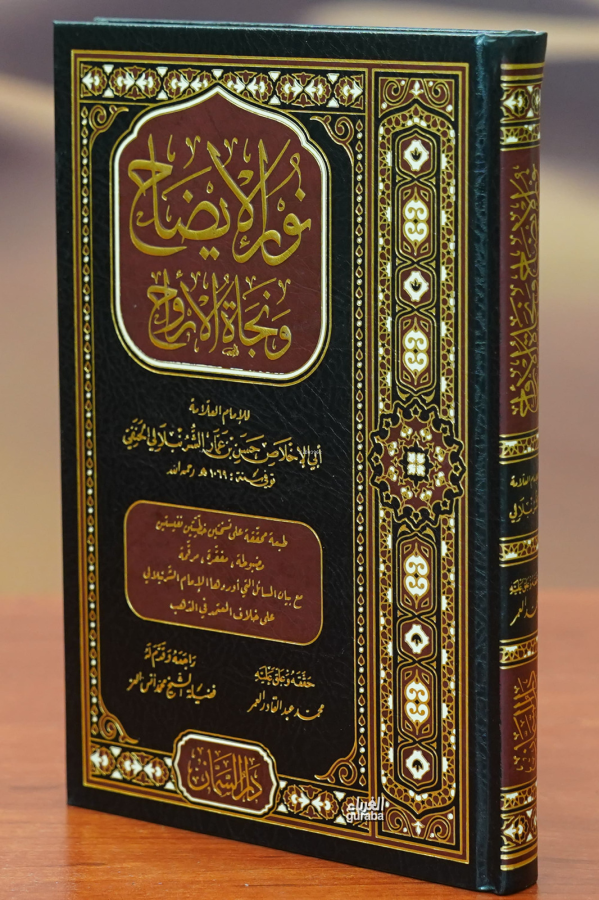 نُورُ الإِيضَاحِ
وَنَجَاةُ الأَرْوَاحِ
للإمام العلّامة
أبي الإخلاص حسن بن عمار الشرنبلالي الحنفي
توفي سنة: ١٠٦٩ هـ رحمه الله
طبعة محققة على نسختين خطيتين نفيستين
مضبوطة، مفقرة، مرقّمة
مع بيان المسائل التي أوردها الإمام الشرنبلالي
على خلاف المعتمد في المذهب
حققه وعلق عليه
محمد عبد القادر العمر
راجعه وقدم له
فضيلة الشيخ محمد أنس
دار السمان
الغرباء
guraba
نور الإيضاح ونجاة الأرواح